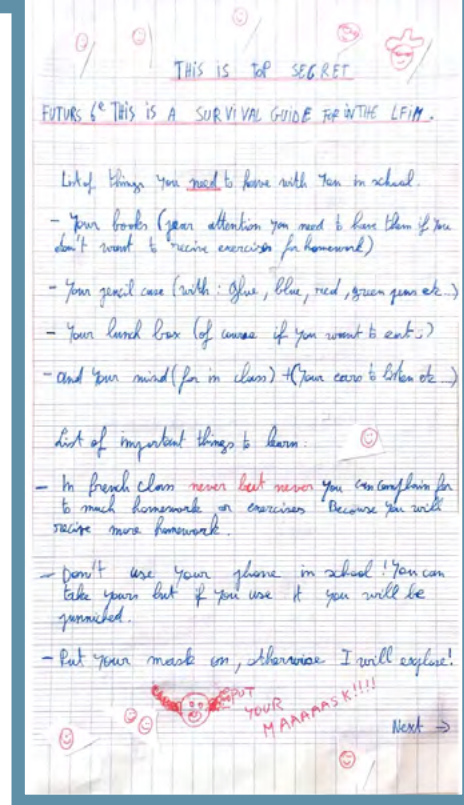 THIS IS TOP SECRET
FUTURS 6e THIS IS A SURVIVAL GUIDE FOR IN THE LFIM.
List of things you need to have with you in school.
- Your books (pear attention you need to have them if you
don't want to recive exercises for homework)
- Your pencil case (with: Glue, blue, red, green pens etc...)
- Your lunch box (of course if you want to eat..)
- and your mind (for in class) + (Your ears to listen etc...)
List of important things to learn:
- In french class never but never you can complain for
to much homework or exercises Because you will
recive more homework.
- Don't use your phone in school! You can
take yours but if you use it you will be
punniched.
- Put your mask on, otherwise I will explose!
PUT
YOUR
MAAAAASK!!!!
Next →